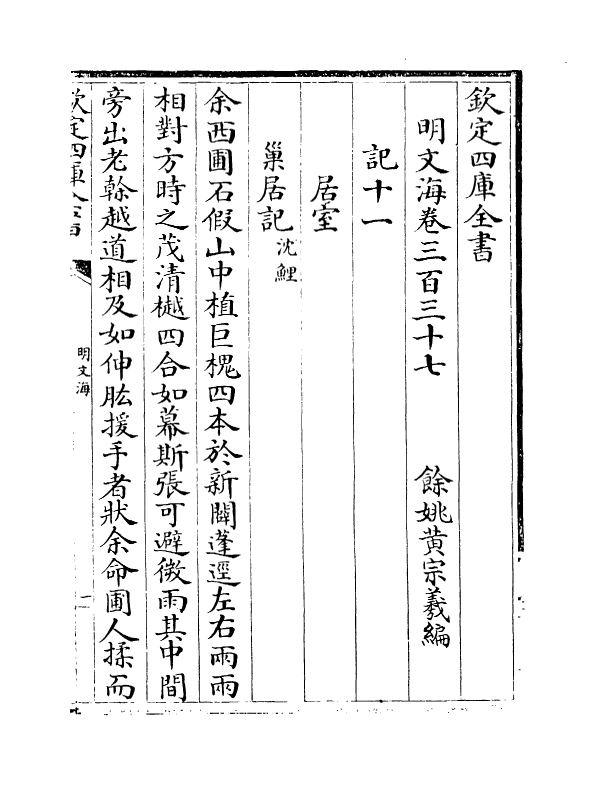 欽定四庫全書
明文海卷三百三十七　餘姚黄宗羲編
記十一
居室
巢居記 沈鯉
余西圃石假山中植巨槐四本於新闢蓬逕左右兩兩
相對方時之茂清樾四合如幕斯張可避微雨其中間
旁出老榦越道相及如伸肱援手者狀余命圃人揉而
欽定四庫全書
明文海
一